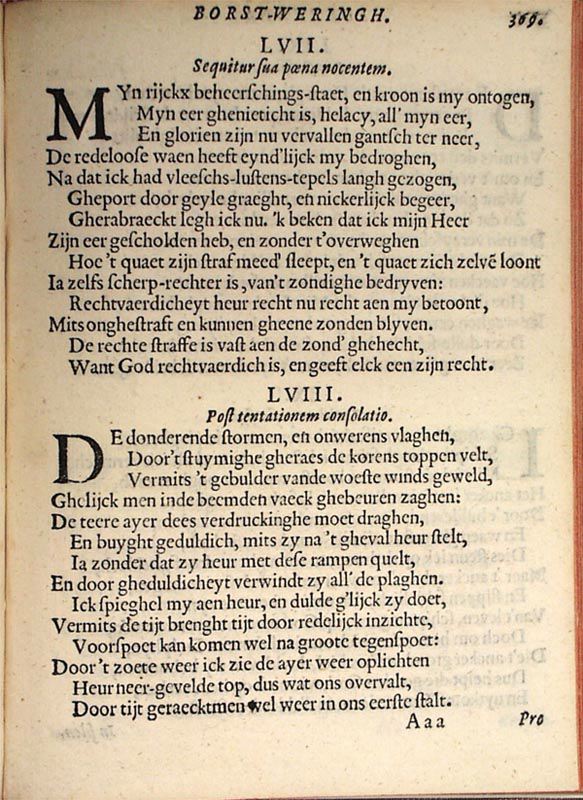 BORST-WERINGH. 369.
LVII.
Sequitur sua pœna nocentem.
MYn rijckx beheerschings-staet, en kroon is my ontogen,
Myn eer ghenieticht is, helacy, all' myn eer,
En glorien zijn nu vervallen gantsch ter neer,
De redeloose waen heeft eynd'lijck my bedroghen,
Na dat ick had vleeschs-lustens-tepels langh gezogen,
Gheport door geyle graeght, en nickerlijck begeer,
Gherabraeckt legh ick nu. 'k beken dat ick mijn Heer
Zijn eer gescholden heb, en zonder t'overweghen
Hoe 't quaet zijn straf meed' sleept, en 't quaet zich zelvē loont
Ia zelfs scherp-rechter is, van't zondighe bedryven:
Rechtvaerdicheyt heur recht nu recht aen my betoont,
Mits onghestraft en kunnen gheene zonden blyven.
De rechte straffe is vast aen de zond' ghehecht,
Want God rechtvaerdich is, en geeft elck een zijn recht.
LVIII.
Post tentationem consolatio.
DE donderende stormen, en onwerens vlaghen,
Door't stuymighe gheraes de korens toppen velt,
Vermits 't gebulder vande woeste winds geweld,
Ghelijck men inde beemden vaeck ghebeuren zaghen:
De teere ayer dees verdruckinghe moet draghen,
En buyght geduldich, mits zy na 't gheval heur stelt,
Ia zonder dat zy heur met dese rampen quelt,
En door gheduldicheyt verwindt zy all' de plaghen.
Ick spieghel my aen heur, en dulde g'lijck zy doet,
Vermits de tijt brenght tijt door redelijck inzichte,
Voorspoet kan komen wel na groote tegenspoet:
Door't zoete weer ick zie de ayer weer oplichten
Heur neer-gevelde top, dus wat ons overvalt,
Door tijt geraecktmen wel weer in ons eerste stalt.
Aaa Pro